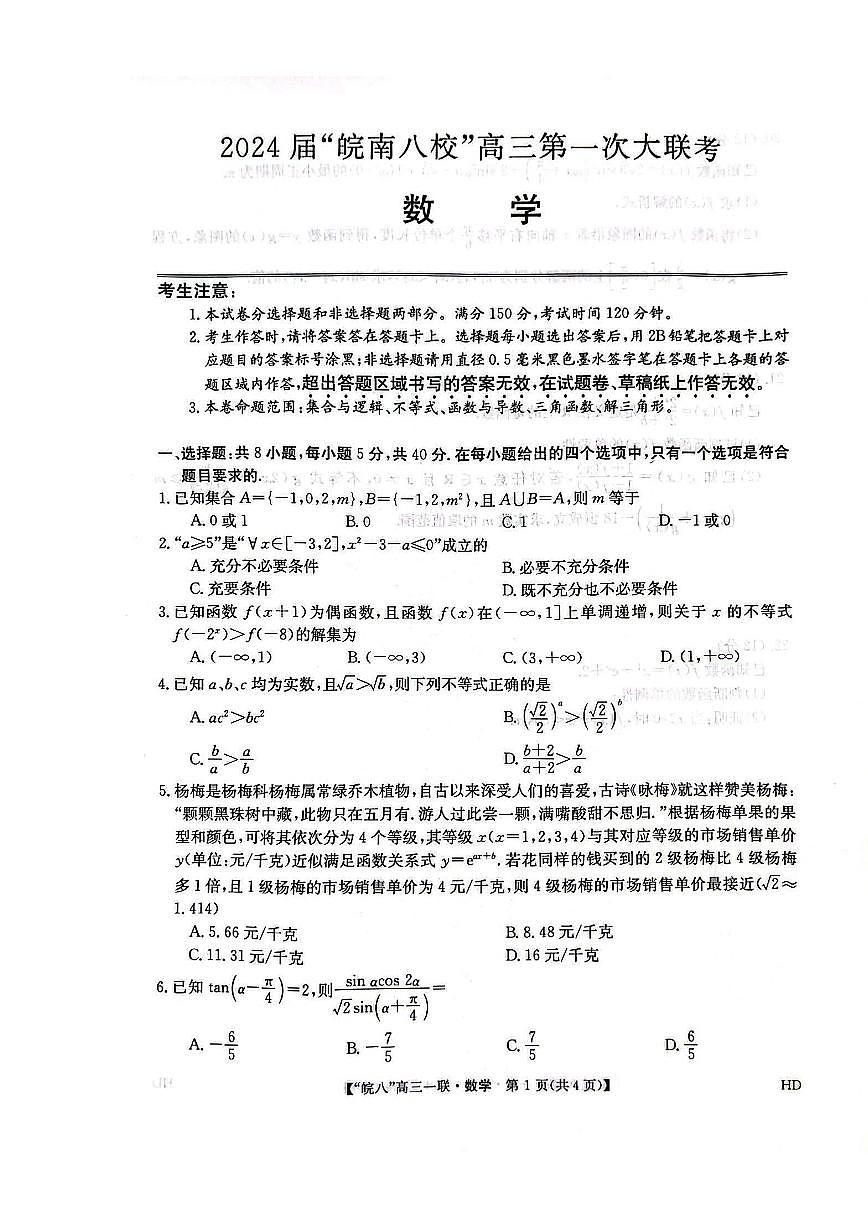 2024 届“皖南八校”高三第一次大联考
数 学
考生注意:
1.本试卷分选择题和非选择题两部分。满分 150 分,考试时间 120 分钟。
2.考生作答时,请将答案答在答题卡上。选择题每小题选出答案后,用 2B 铅笔把答题卡上对
应题目的答案标号涂黑;非选择题请用直径 0.5 毫米黑色墨水签字笔在答题卡上各题的答
题区域内作答,超出答题区域书写的答案无效,在试题卷、草稿纸上作答无效。
3.本卷命题范围:集合与逻辑、不等式、函数与导数、三角函数、解三角形。
一、选择题:共 8 小题,每小题 5 分,共 40 分.在每小题给出的四个选项中,只有一个选项是符合
题目要求的.
1.已知集合 A={-1,0,2,m},B={-1,2,m²},且 A∪B=A,则 m 等于
A.0 或 1 B.0 C.1 D.-1 或 0
2.“a≥5”是“∀x∈[-3,2],x²-3-a≤0”成立的
A.充分不必要条件 B.必要不充分条件
C.充要条件 D.既不充分也不必要条件
3.已知函数 f(x+1)为偶函数,且函数 f(x)在(-∞,1]上单调递增,则关于 x 的不等式
f(-2ˣ)>f(-8)的解集为
A.(-∞,1) B.(-∞,3) C.(3,+∞) D.(1,+∞)
4.已知 a、b、c 均为实数,且√a>√b,则下列不等式正确的是
A.ac²>bc² B.(√2/2)^a>(√2/2)^b
C.b/a>a/b D.(b+2)/(a+2)>b/a
5.杨梅是杨梅科杨梅属常绿乔木植物,自古以来深受人们的喜爱,古诗《咏梅》就这样赞美杨梅:
“颗颗黑珠树中藏,此物只在五月有.游人过此尝一颗,满嘴酸甜不思归.”根据杨梅单果的果
型和颜色,可将其依次分为 4 个等级,其等级 x(x=1,2,3,4)与其对应等级的市场销售单价
y(单位:元/千克)近似满足函数关系式 y=e^(ax+b).若花同样的钱买到的 2 级杨梅比 4 级杨梅
多 1 倍,且 1 级杨梅的市场销售单价为 4 元/千克,则 4 级杨梅的市场销售单价最接近(√2≈
1.414)
A.5.66 元/千克 B.8.48 元/千克
C.11.31 元/千克 D.16 元/千克
6.已知 tan(α-π/4)=2,则 sin αcos 2α/(√2sin(α+π/4))=
A.-6/5 B.-7/5 C.7/5 D.6/5
【“皖八”高三一联·数学 第 1 页(共 4 页)】 HD